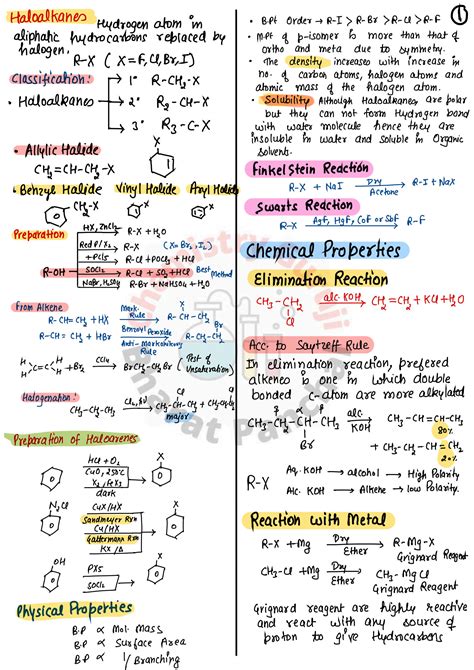 Haloalkanes Hydrogen atom in
aliphatic hydrocarbons replaced by
halogen.
R-X (X=F,Cl,Br,I)
Classification:
• Haloalkanes
1° R-CH₂-X
2° R₂-CH-X
3° R₃-C-X
• Allylic Halide
CH₂=CH-CH₂-X
X
• Benzyl Halide Vinyl Halide Aryl Halide
CH₂-X
X
X
Preparation
R-OH
HX, ZnCl₂ R-X + H₂O
Red P/X₂ R-X (X=Br₂, I₂)
+PCl₅ R-Cl + POCl₃ + HCl
SOCl₂ R-Cl + SO₂ + HCl Best Method
NaBr, H₂SO₄ R-Br + NaHSO₄ + H₂O
From Alkene
R-CH=CH₂ + HX Mark. Rule R-CH-CH₃
Br
R-CH=CH₂ + HBr Benzoyl Peroxide R-CH₂-CH₂
Anti-Markovnikov Rule
Br
H H
C=C + Br₂ CCl₄ BrCH₂-CH₂Br (Test of Unsaturation)
H H
Halogenation:
CH₃-CH₂-CH₃ Cl₂, UV CH₃-CH-CH₃ + CH₃CH₂CH₂
Cl
Cl
major
Preparation of Haloarenes
HCl + O₂
CuO, 250°C
X₂/FeX₃
dark
X
N₂Cl
CuX/HX
Sandmeyer Rxn
Cu/HX
Gattermann Rxn
KX/Δ
X
OH
PX₅
SOCl₂
X
Physical Properties
B.P ∝ Mol. Mass
B.P ∝ Surface Area
B.P ∝ 1/Branching
①
• B.Pt Order → R-I > R-Br > R-Cl > R-F
• M.Pt of p-isomer is more than that of
ortho and meta due to symmetry.
• The density increases with increase in
no. of carbon atoms, halogen atoms and
atomic mass of the halogen atom.
• Solubility Although Haloalkanes are polar
but they can not form Hydrogen bond
with water molecule hence they are
insoluble in water and soluble in Organic
Solvents.
Finkelstein Reaction
R-X + NaI Dry Acetone R-I + NaX
Swarts Reaction
R-X AgF, HgF₂ CoF or SbF R-F
Chemical Properties
Elimination Reaction
CH₃-CH₂ alc. KOH CH₂=CH₂ + KCl + H₂O
Cl
Acc. to Saytzeff Rule
In elimination reaction, prefered
alkenes is one in which double
bonded C-atom are more alkylated
β α β
CH₃-CH₂-CH-CH₃ alc. KOH CH₃-CH=CH-CH₃
Br
80%
+ CH₃-CH₂-CH=CH₂
20%
R-X
Aq. KOH → alcohol → High Polarity
Alc. KOH → Alkene → low Polarity.
Reaction with Metal
R-X + Mg Dry Ether R-Mg-X
Grignard Reagent
CH₃-Cl + Mg Dry Ether CH₃-MgCl
Grignard Reagent
Grignard reagent are highly reactive
and react with any source of
proton to give Hydrocarbons
Bharat Panchal